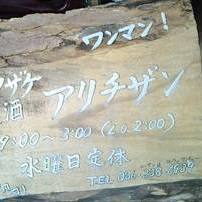 ワンマン!
ノザケ
酒 アリチザン
9:00~3:00 (L.o.2:00)
水曜日定休
TEL